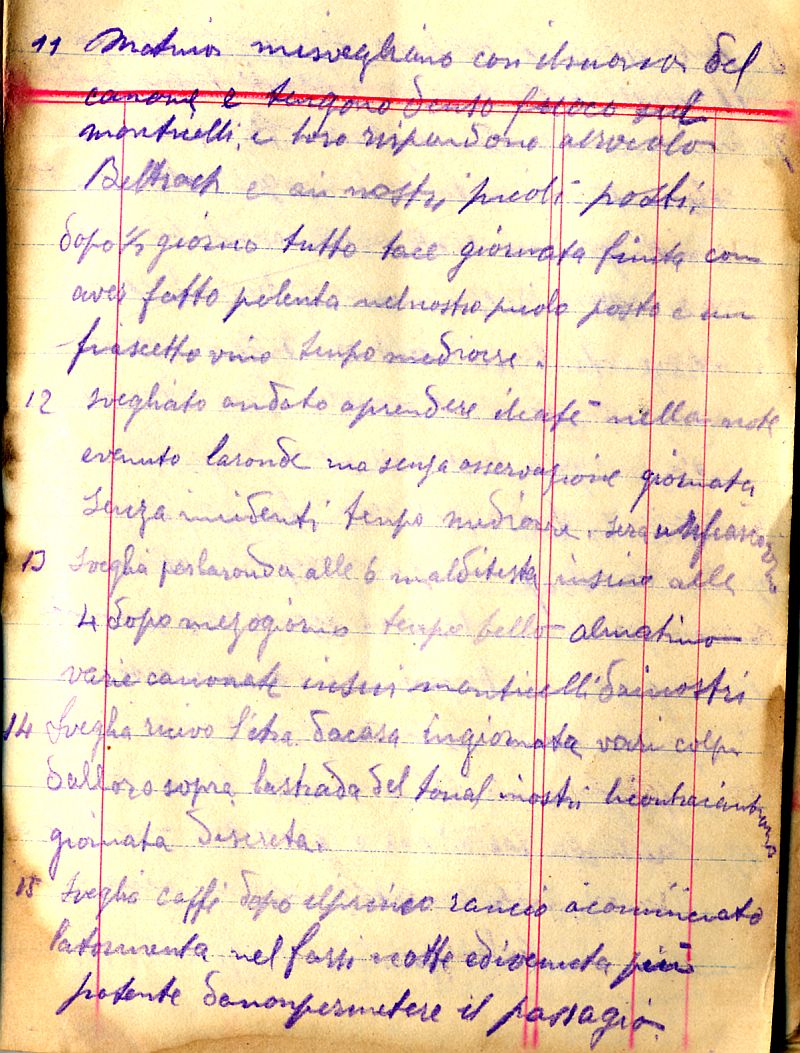 11 Matina misvegliano con ilsuono del
canone e tengono denso fuoco sul
monticelli, e loro rispondono alrocolo
e ai nostri picoli posti,
dopo ½ giorno tutto tace giornata finita con
aver fatto polenta nelnostro picolo posto e un
fiascetto vino tempo mediocre.
12 svegliato andato aprendere ilcafè nella note
evenuto laronde ma senza osservazione giornata
senza incidenti tempo mediocre. sera
13 Sveglia perlaronda alle 6 malditesta insino alle
4 dopo mezogiorno tempo bello almatino
varie canonate insui monticelli dainostri
14 Sveglia ricevo letra dacasa ingiornata vari colpi
dalloro sopra lastrada del tonal inostri
giornata discreta.
15 Sveglia caffè dopo ilprimo rancio acominciato
latormenta nel farsi notte edivenuta più
potente danonpermetere il passagio